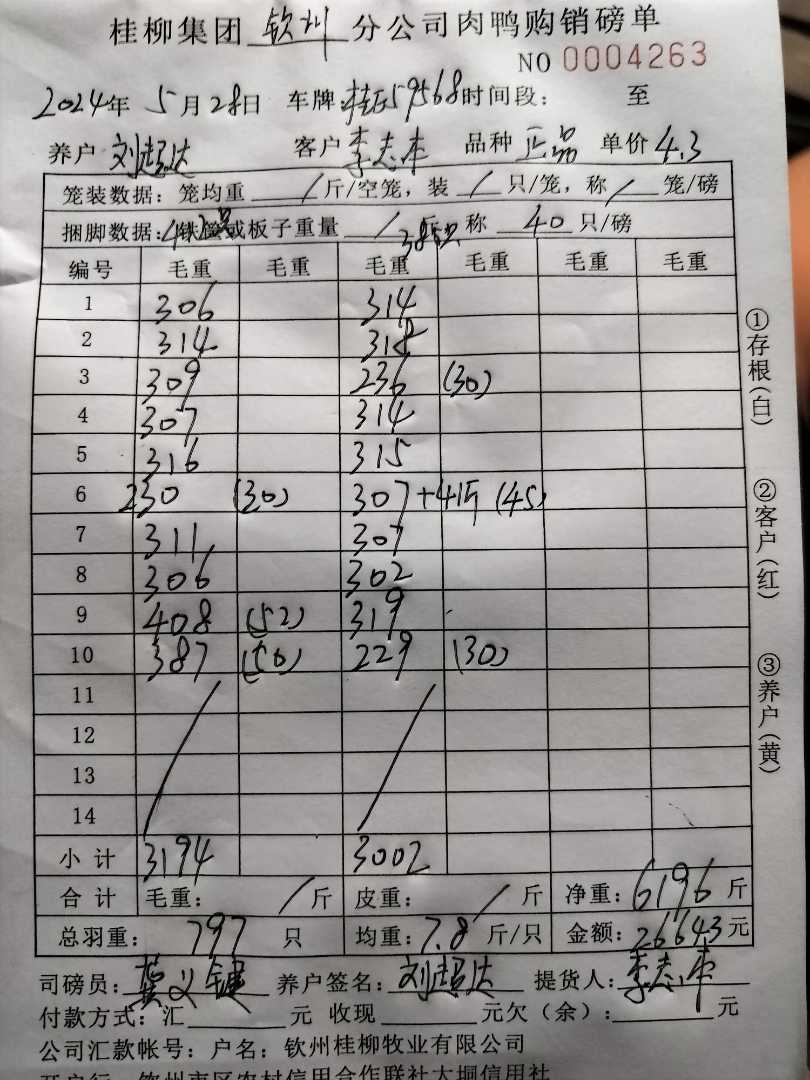 桂柳集团 钦州 分公司肉鸭购销磅单
NO 0004263
2024年 5月28日 车牌:桂E59568时间段: 至
养户 刘超达 客户 李志本 品种 正品 单价 4.3
笼装数据: 笼均重 / 斤/空笼, 装 / 只/笼, 称 / 笼/磅
捆脚数据: 或板子重量 / 斤 称 40 只/磅
编号 毛重 毛重 毛重 毛重 毛重 毛重
1 306 314
2 314 318
3 309 236 (30)
4 307 314
5 316 315
6 230 (30) 307+4斤 (45)
7 311 307
8 306 302
9 408 (52) 319
10 387 (50) 229 (30)
11
12
13
14
小计 3194 3002
合计 毛重: / 斤 皮重: / 斤 净重: 6196 斤
总羽重: 797 只 均重: 7.8 斤/只 金额: 26643 元
司磅员: 义键 养户签名: 刘超达 提货人: 李志本
付款方式: 汇 元 收现 元欠（余）: 元
公司汇款帐号: 户名: 钦州桂柳牧业有限公司
开户行: 钦州市区农村信用合作联社大垌信用社
①存根(白)
②客户(红)
③养户(黄)